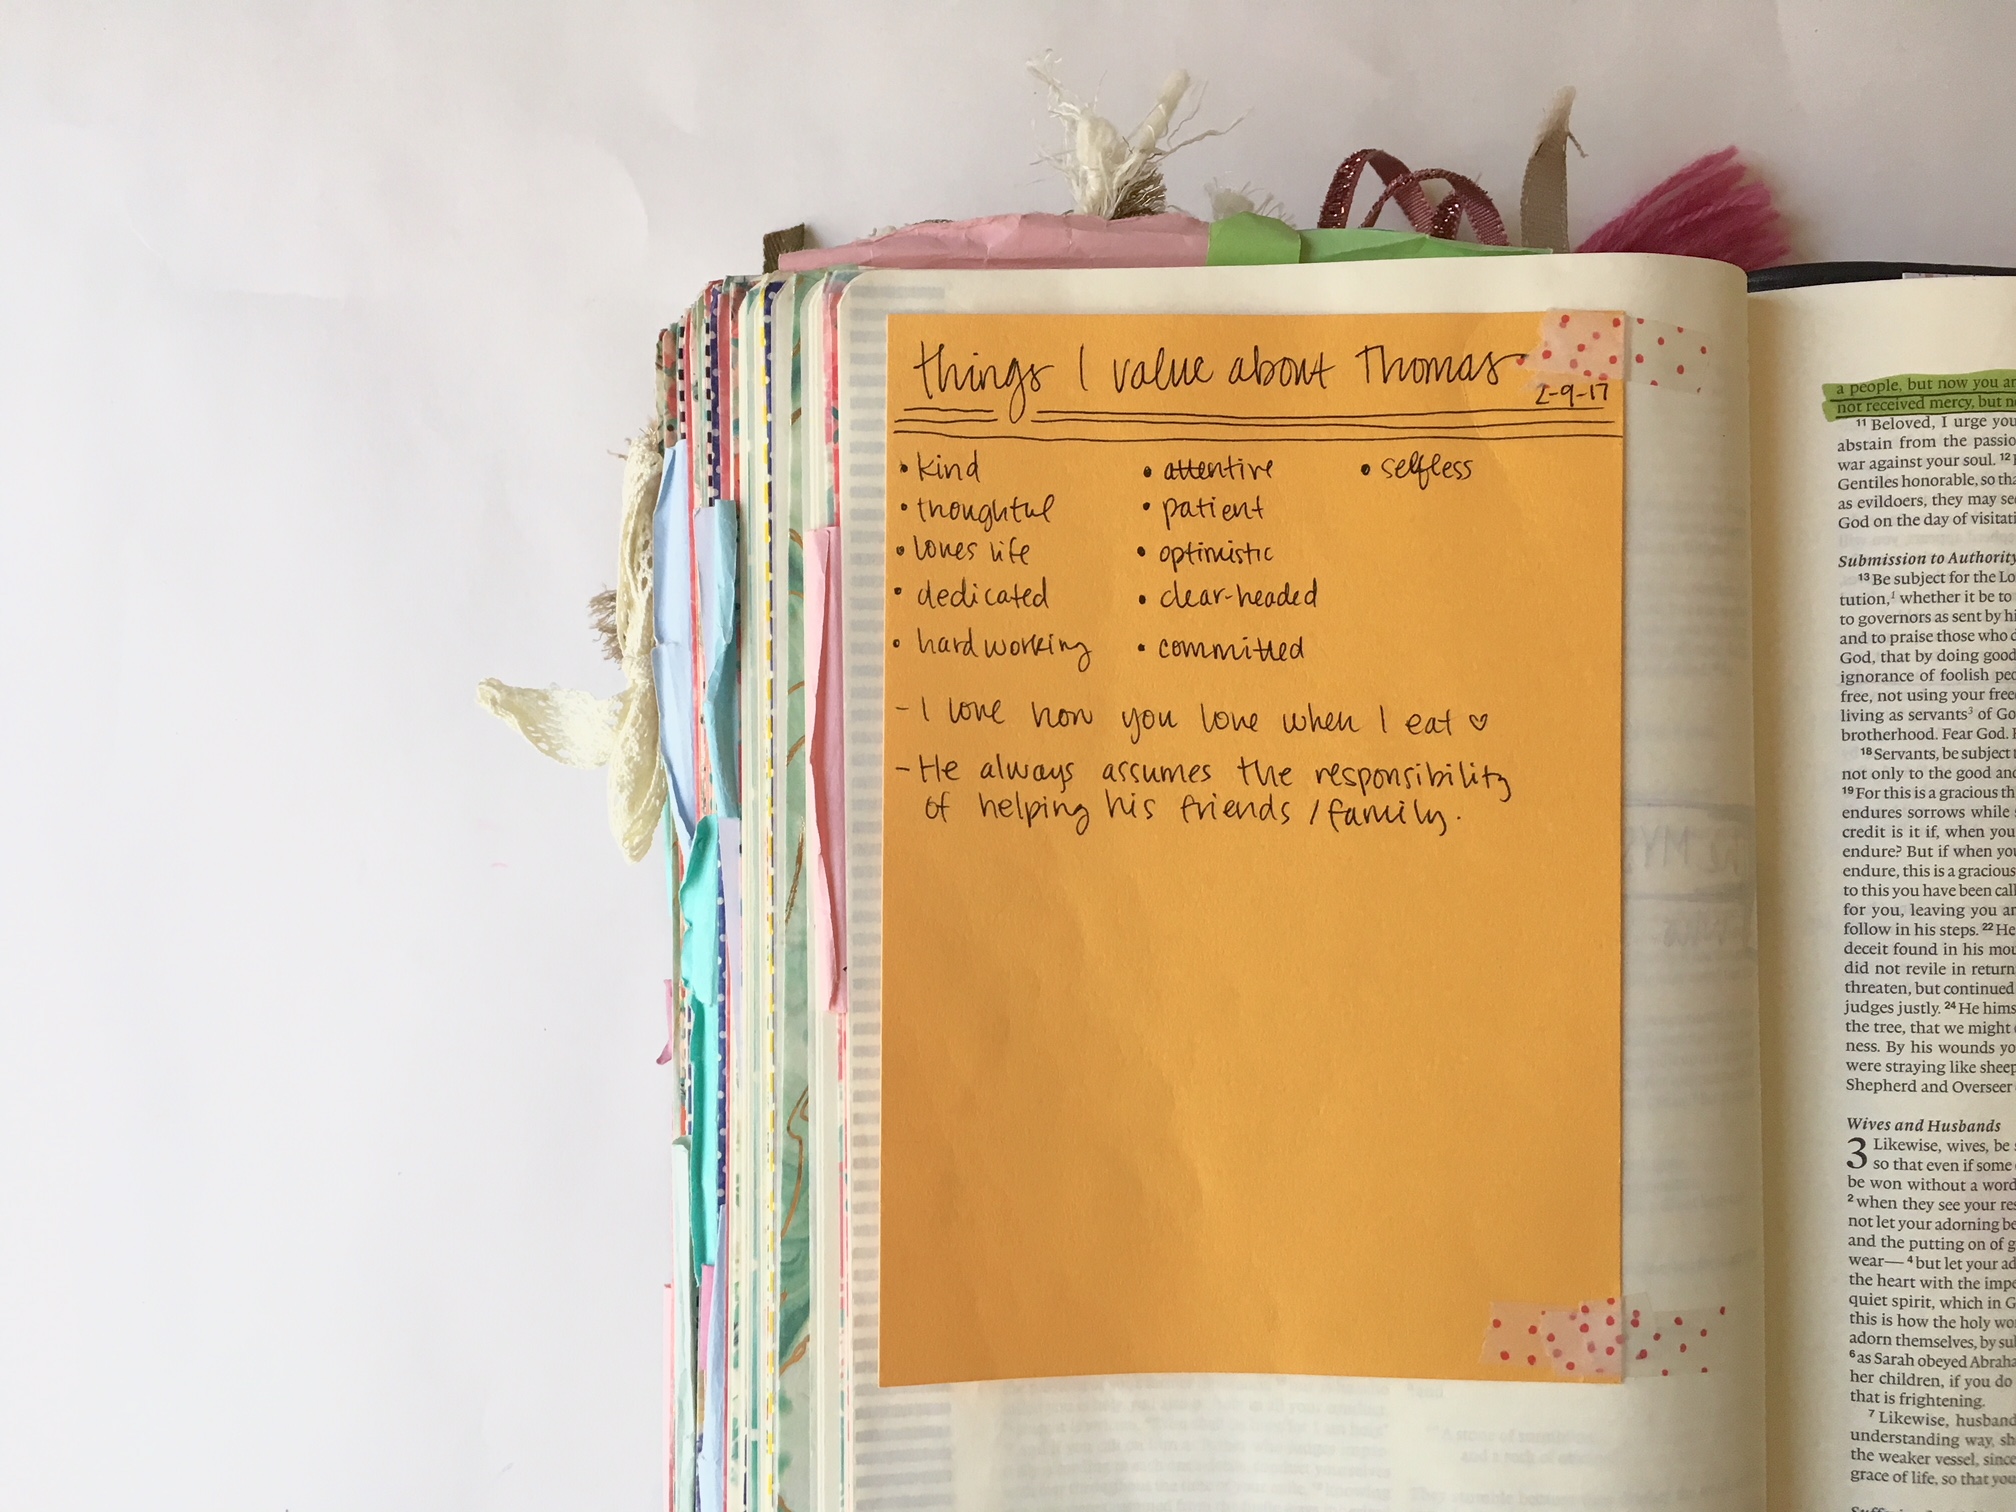 things I value about Thomas
2-9-17
• kind
• thoughtful
• loves life
• dedicated
• hardworking
• attentive
• patient
• optimistic
• clear-headed
• committed
• selfless
- I love how you love when I eat ♡
- He always assumes the responsibility
of helping his friends / family.
a people, but now you
not received mercy, but
11 Beloved, I urge you
abstain from the
war against your soul. 12
Gentiles honorable, so
as evildoers, they may
God on the day of
Submission to Authority
13 Be subject for the
tution,¹ whether it be to
to governors as sent by
and to praise those who
God, that by doing good
ignorance of foolish
free, not using your
living as servants³ of
brotherhood. Fear God.
18 Servants, be subject
not only to the good and
19 For this is a gracious
endures sorrows while
credit is it if, when you
endure? But if when you
endure, this is a gracious
to this you have been
for you, leaving you
follow in his steps. 22 He
deceit found in his
did not revile in return
threaten, but continued
judges justly. 24 He
the tree, that we might
ness. By his wounds
were straying like sheep
Shepherd and Overseer
Wives and Husbands
3 Likewise, wives, be
so that even if some
be won without a word
2 when they see your
not let your adorning
and the putting on of
wear— 4 but let your
the heart with the
quiet spirit, which in
this is how the holy
adorn themselves, by
6 as Sarah obeyed
her children, if you do
that is frightening.
7 Likewise,
understanding way,
the weaker vessel, since
grace of life, so that you